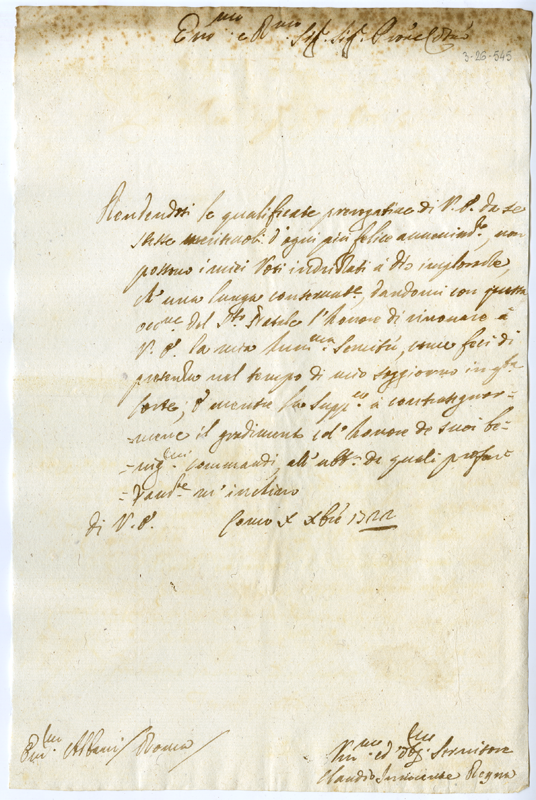 Em.mo e R.mo Sig.r Sig.r P'rone Col.mo
3-26-545
Rendendosi le qualificate prerogative di V.E. da se
stesse meritevoli d'ogni più felice annuncio, non
possono i miei Voti indrizzati à Dio implorarle,
ch'una lunga conservat.e, dandomi con questa
occ.ne del S.to Natale l'honore di rinovare à
V.E. la mia hum.ma Servitù, come feci di
presenza nel tempo di mio soggiorno in q'ta
Corte; E mentre la supp.co à contrasegnar=
=mene il gradimento col' honore de suoi be=
=nig.mi commandi, all' ubb. de quali profon=
=dam.te m'inchino
di V.E. Como X Xbre 1722
Em.mo Albani / Roma /
Hum.mo ed Obb. Servitore
Claudio Innocenzo Regna